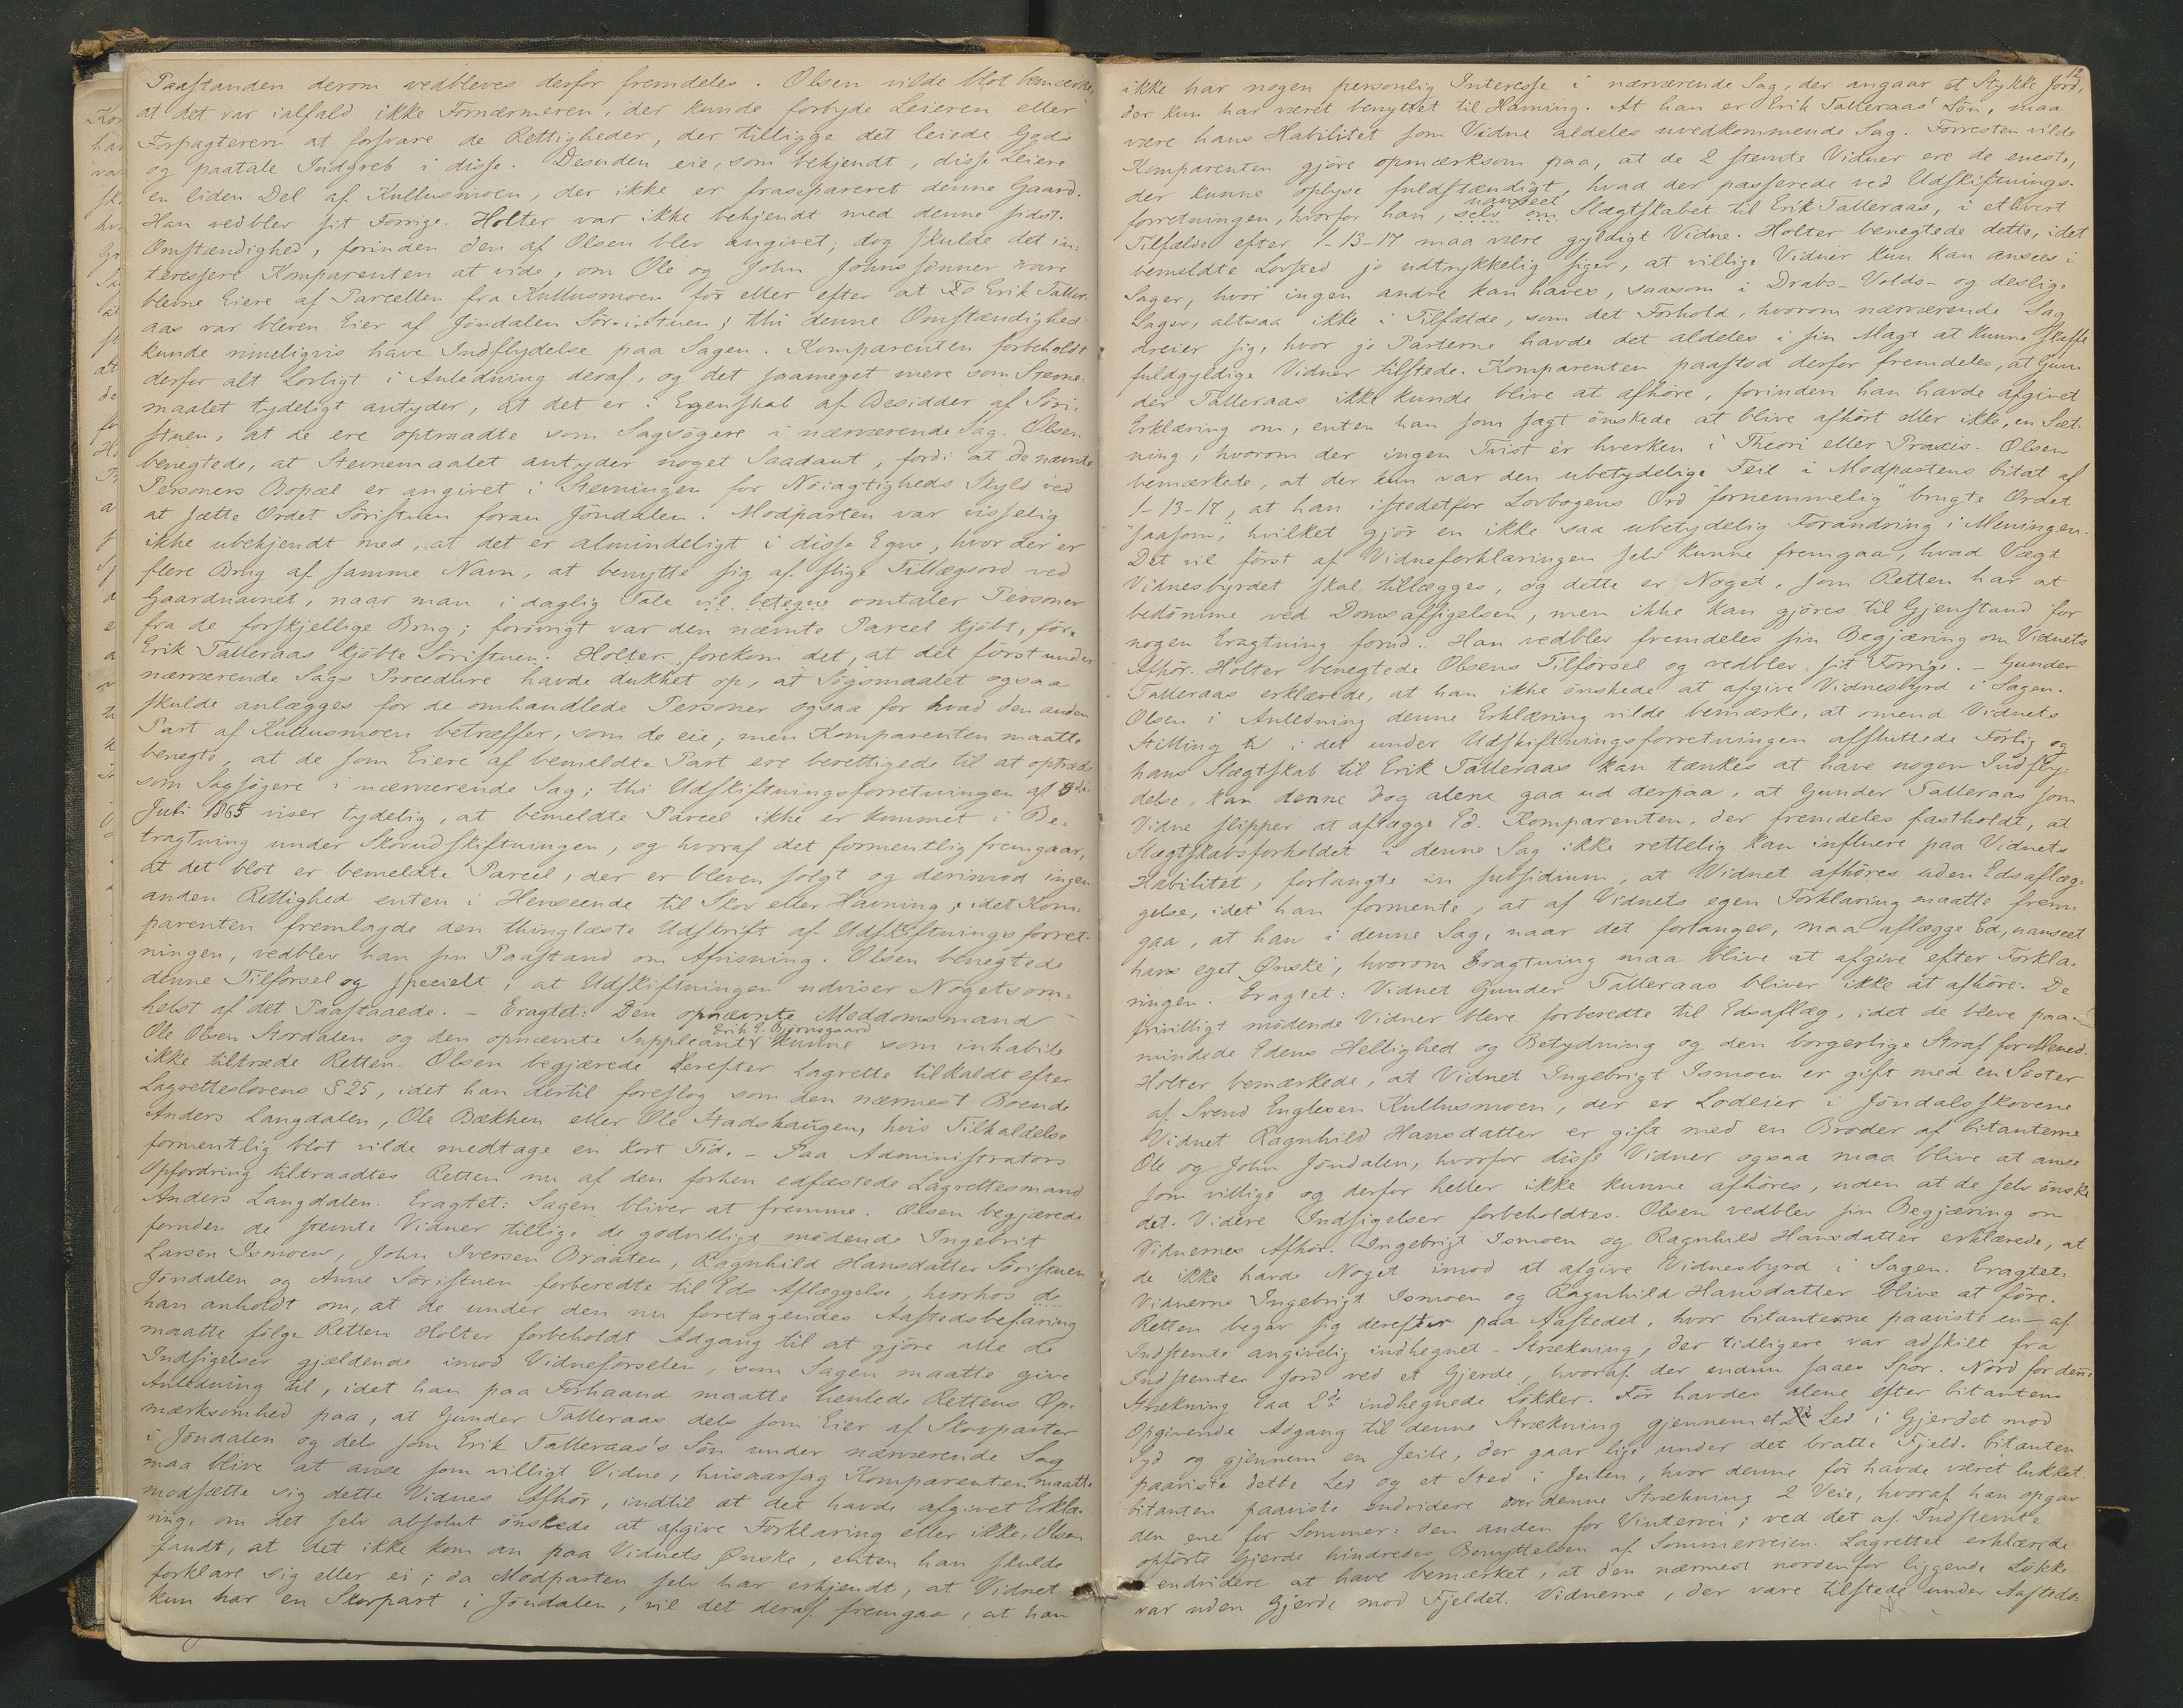 Paastanden derom vedbleves derfor fremdeles. Olsen vilde blot bemærke,
at det var ialfald ikke Fornærmeren, der kunde forbyde Leieren eller
Forpagteren at forsvare de Rettigheder, der tilligge det leiede Gods
og paatale Indgreb i disse. Desuden eie, som bekjendt, disse Leiere
en liden Del af Kullusmoen, der ikke er frasepareret denne Gaard.
Han vedblev sit Forrige. Holter var ikke bekjendt med denne sidste
Omstændighed, forinden den af Olsen blev angivet; dog skulde det in-
teressere Komparenten at vide, om Ole og John Johnssønner vare
blevne Eiere af Parcellen fra Kullusmoen før eller efter at Erik Taller-
aas var bleven Eier af Jøndalen Sør-i-Stuen; thi denne Omstændighed
kunde rimeligvis have Indflydelse paa Sagen. Komparenten forbeholdt
derfor alt Lovligt i Anledning deraf, og det saameget mere som Stevne-
maalet tydeligt antyder, at det er i Egenskab af Besidder af Søri-
stuen, at de ere optraadte som Sagsøgere i nærværende Sag. Olsen
benegtede, at Stevnemaalet antyder noget Saadant, fordi at de nævnte
Personers Bopæl er angivet i Stevningen for Nøiagtigheds Skyld ved
at sætte Ordet Søristuen foran Jøndalen. Modparten var visselig
ikke ubekjendt med, at det er almindeligt i disse Egne, hvor der er
flere Brug af samme Navn, at benytte sig af slige Tillægsord ved
Gaardnavnet, naar man i daglig Tale vil betegne omtaler Personer
fra de forskjellige Brug; forøvrigt var den nævnte Parcel kjøbt, før
Erik Talleraas kjøbte Søristuen. Holter forekom det, at det først under
nærværende Sags Procedure havde dukket op, at Søgsmaalet ogsaa
skulde anlægges for de omhandlede Personer ogsaa for hvad den anden
Part af Kullusmoen betræffer, som de eie; men Komparenten maatte
benegte, at de som Eiere af bemeldte Part ere berettigede til at optræde
som Sagsøgere i nærværende Sag; thi Udskiftningsforretningen af
Juli 1865 viser tydelig, at bemeldte Parcel ikke er kommet i Be-
tragtning under Skovudskiftningen, og hvoraf det formentlig fremgaar,
at det blot er bemeldte Parcel, der er bleven solgt og derimod ingen
anden Rettighed enten i Henseende til Skov eller Havning; idet Kom-
parenten fremlagde den thinglæste Udskrift af Udskiftningsforret-
ningen, vedblev han sin Paastand om Afvisning. Olsen benegtede
denne Tilførsel og specielt, at Udskiftningen udviser Nogetsom-
helst af det Paastaaede. – Eragtet: Den opnævnte Meddomsmand
Ole Olsen Stordalen og den opnævnte Suppleant Erik E. Bjørnsgaard kunne som inhabile
ikke tiltræde Retten. Olsen begjærede derefter Lagrette tilkaldt efter
Lagretteslovens § 25, idet han dertil foreslog som den nærmest Boende
Anders Langdalen, Ole Bækken eller Ole Stadshaugen, hvis Tilkaldelse
formentlig blot vilde medtage en kort Tid. – Paa Administrators
Opfordring tiltraadtes Retten nu af den forhen edfæstede Lagrettesmand
Anders Langdalen. Eragtet: Sagen bliver at fremme. Olsen begjærede
foruden de stevnte Vidner tillige de godvilligt mødende Ingebrit
Larsen Ismoen, John Iversen Braaten, Ragnhild Hansdatter Søristuen
Jøndalen og Anne Søristuen forberedte til Eds Aflæggelse, hvorhos de
han anholdt om, at de under den nu foretagendes Aastedsbefaring
maatte følge Retten. Holter forbeholdt Adgang til at gjøre alle de
Indsigelser gjældende imod Vidneførselen, som Sagen maatte give
Anledning til, idet han paa Forhaand maatte henlede Rettens Op-
mærksomhed paa, at Gunder Talleraas dels som Eier af Skovparter
i Jøndalen og dels som Erik Talleraas's Søn under nærværende Sag
maa blive at anse som villigt Vidne, hvisaarsag Komparenten maatte
modsætte sig dette Vidnes Afhør, indtil at det havde afgivet Erklæ-
ring, om det selv absolut ønskede at afgive Forklaring eller ikke. Olsen
fandt, at det ikke kom an paa Vidnets Ønske, enten han skulde
forklare sig eller ei; da Modparten selv har erkjendt, at Vidnet
kun har en Skovpart i Jøndalen, vil det deraf fremgaa, at han
12
ikke har nogen personlig Interesse i nærværende Sag, der angaar et Stykke Jord,
der kun har været benyttet til Havning. At han er Erik Talleraas' Søn, maa
være hans Habilitet som Vidne aldeles uvedkommende Sag. Forresten vilde
Komparenten gjøre opmærksom paa, at de 2 stevnte Vidner ere de eneste,
der kunne oplyse fuldstændigt, hvad der passerede ved Udskiftnings-
forretningen, hvorfor han, selv om uanseet Slægtskabet til Erik Talleraas, i ethvert
Tilfælde efter 1-13-17 maa være gyldigt Vidne. Holter benegtede dette, idet
bemeldte Lovsted jo udtrykkelig siger, at villige Vidner kun kan ansees i
Sager, hvor ingen andre kan haves, saasom i Drabs- Volds- og deslige
Sager, altsaa ikke i Tilfælde, som det Forhold, hvorom nærværende Sag
dreier sig, hvor jo Parterne havde det aldeles i sin Magt at kunne skaffe
fuldgyldige Vidner tilstede. Komparenten paastod derfor fremdeles, at Gun-
der Talleraas ikke kunde blive at afhøre, forinden han havde afgivet
Erklæring om, enten han som sagt ønskede at blive afhørt eller ikke, en Sæt-
ning, hvorom der ingen Tvist er hverken i Theori eller Praxis. Olsen
bemærkede, at der kun var den ubetydelige Feil i Modpartens Citat af
1-13-17, at han istedetfor Lovbogens Ord "fornemmelig" brugte Ordet
"saasom", hvilket gjør en ikke saa ubetydelig Forandring i Meningen.
Det vil først af Vidneforklaringen selv kunne fremgaa, hvad Vægt
Vidnesbyrdet skal tillægges, og dette er Noget, som Retten har at
bedømme ved Domsafsigelsen, men ikke kan gjøres til Gjenstand for
nogen Eragtning forud. Han vedblev fremdeles sin Begjæring om Vidnets
Afhør. Holter benegtede Olsens Tilførsel og vedblev sit Forrige. – Gunder
Talleraas erklærede, at han ikke ønskede at afgive Vidnesbyrd i Sagen.
Olsen i Anledning denne Erklæring vilde bemærke, at omend Vidnets
Stilling til i det under Udskiftningsforretningen afsluttede Forlig og
hans Slægtskab til Erik Talleraas kan tænkes at have nogen Indfly-
delse, kan denne dog alene gaa ud derpaa, at Gunder Talleraas som
Vidne slipper at aflægge Ed. Komparenten, der fremdeles fastholdt, at
Slægtskabsforholdet i denne Sag ikke rettelig kan influere paa Vidnets
Habilitet, forlangte in subsidium, at Vidnet afhøres uden Edsaflæg-
gelse, idet han formente, at af Vidnets egen Forklaring maatte frem-
gaa, at han i denne Sag, naar det forlanges, maa aflægge Ed, uanseet
hans eget Ønske, hvorom Eragtning maa blive at afgive efter Forkla-
ringen. Eragtet: Vidnet Gunder Talleraas bliver ikke at afhøre. De
frivilligt mødende Vidner bleve forberedte til Edsaflæg, idet de bleve paa-
mindede Edens Hellighed og Betydning og den borgerlige Straf for Mened.
Holter bemærkede, at Vidnet Ingebrigt Ismoen er gift med en Søster
af Svend Englesen Kullusmoen, der er Lodeier i Jøndalsskovene
Vidnet Ragnhild Hansdatter er gift med en Broder af Citanterne
Ole og John Jøndalen, hvorfor disse Vidner ogsaa maa blive at anse
som villige og derfor heller ikke kunne afhøres, uden at de selv ønske
det. Videre Indsigelser forbeholdtes. Olsen vedblev sin Begjæring om
Vidnernes Afhør. Ingebrigt Ismoen og Ragnhild Hansdatter erklærede, at
de ikke havde Noget imod at afgive Vidnesbyrd i Sagen. Eragtet:
Vidnerne Ingebrigt Ismoen og Ragnhild Hansdatter blive at føre.
Retten begav sig derefter paa Aastedet, hvor Citanterne paaviste en – af
Indstevnte angivelig indhegnet – Strækning, der tidligere var adskilt fra
Indstevntes Jord ved et Gjerde, hvoraf der endnu saaes Spor. Nord for denne
Strækning laa 2de indhegnede Løkker. Før havdes alene efter Citantens
Opgivende Adgang til denne Strækning gjennem et Led i Gjerdet mod
Syd og gjennem en Jeile, der gaar lige under det bratte Fjeld. Citanten
paaviste dette Led og et Sted i Jeilen, hvor denne før havde været lukket.
Citanten paaviste endvidere over denne Strækning 2 Veie, hvoraf han opgav
den ene for Sommer- den anden for Vintervei; ved det af Indstevnte
opførte Gjerde hindredes Benyttelsen af Sommerveien. Lagrettet erklærede
endvidere at have bemærket, at den nærmest nordenfor liggende Løkke
var uden Gjerde mod Fjeldet. Vidnerne, der vare tilstede under Aasteds-